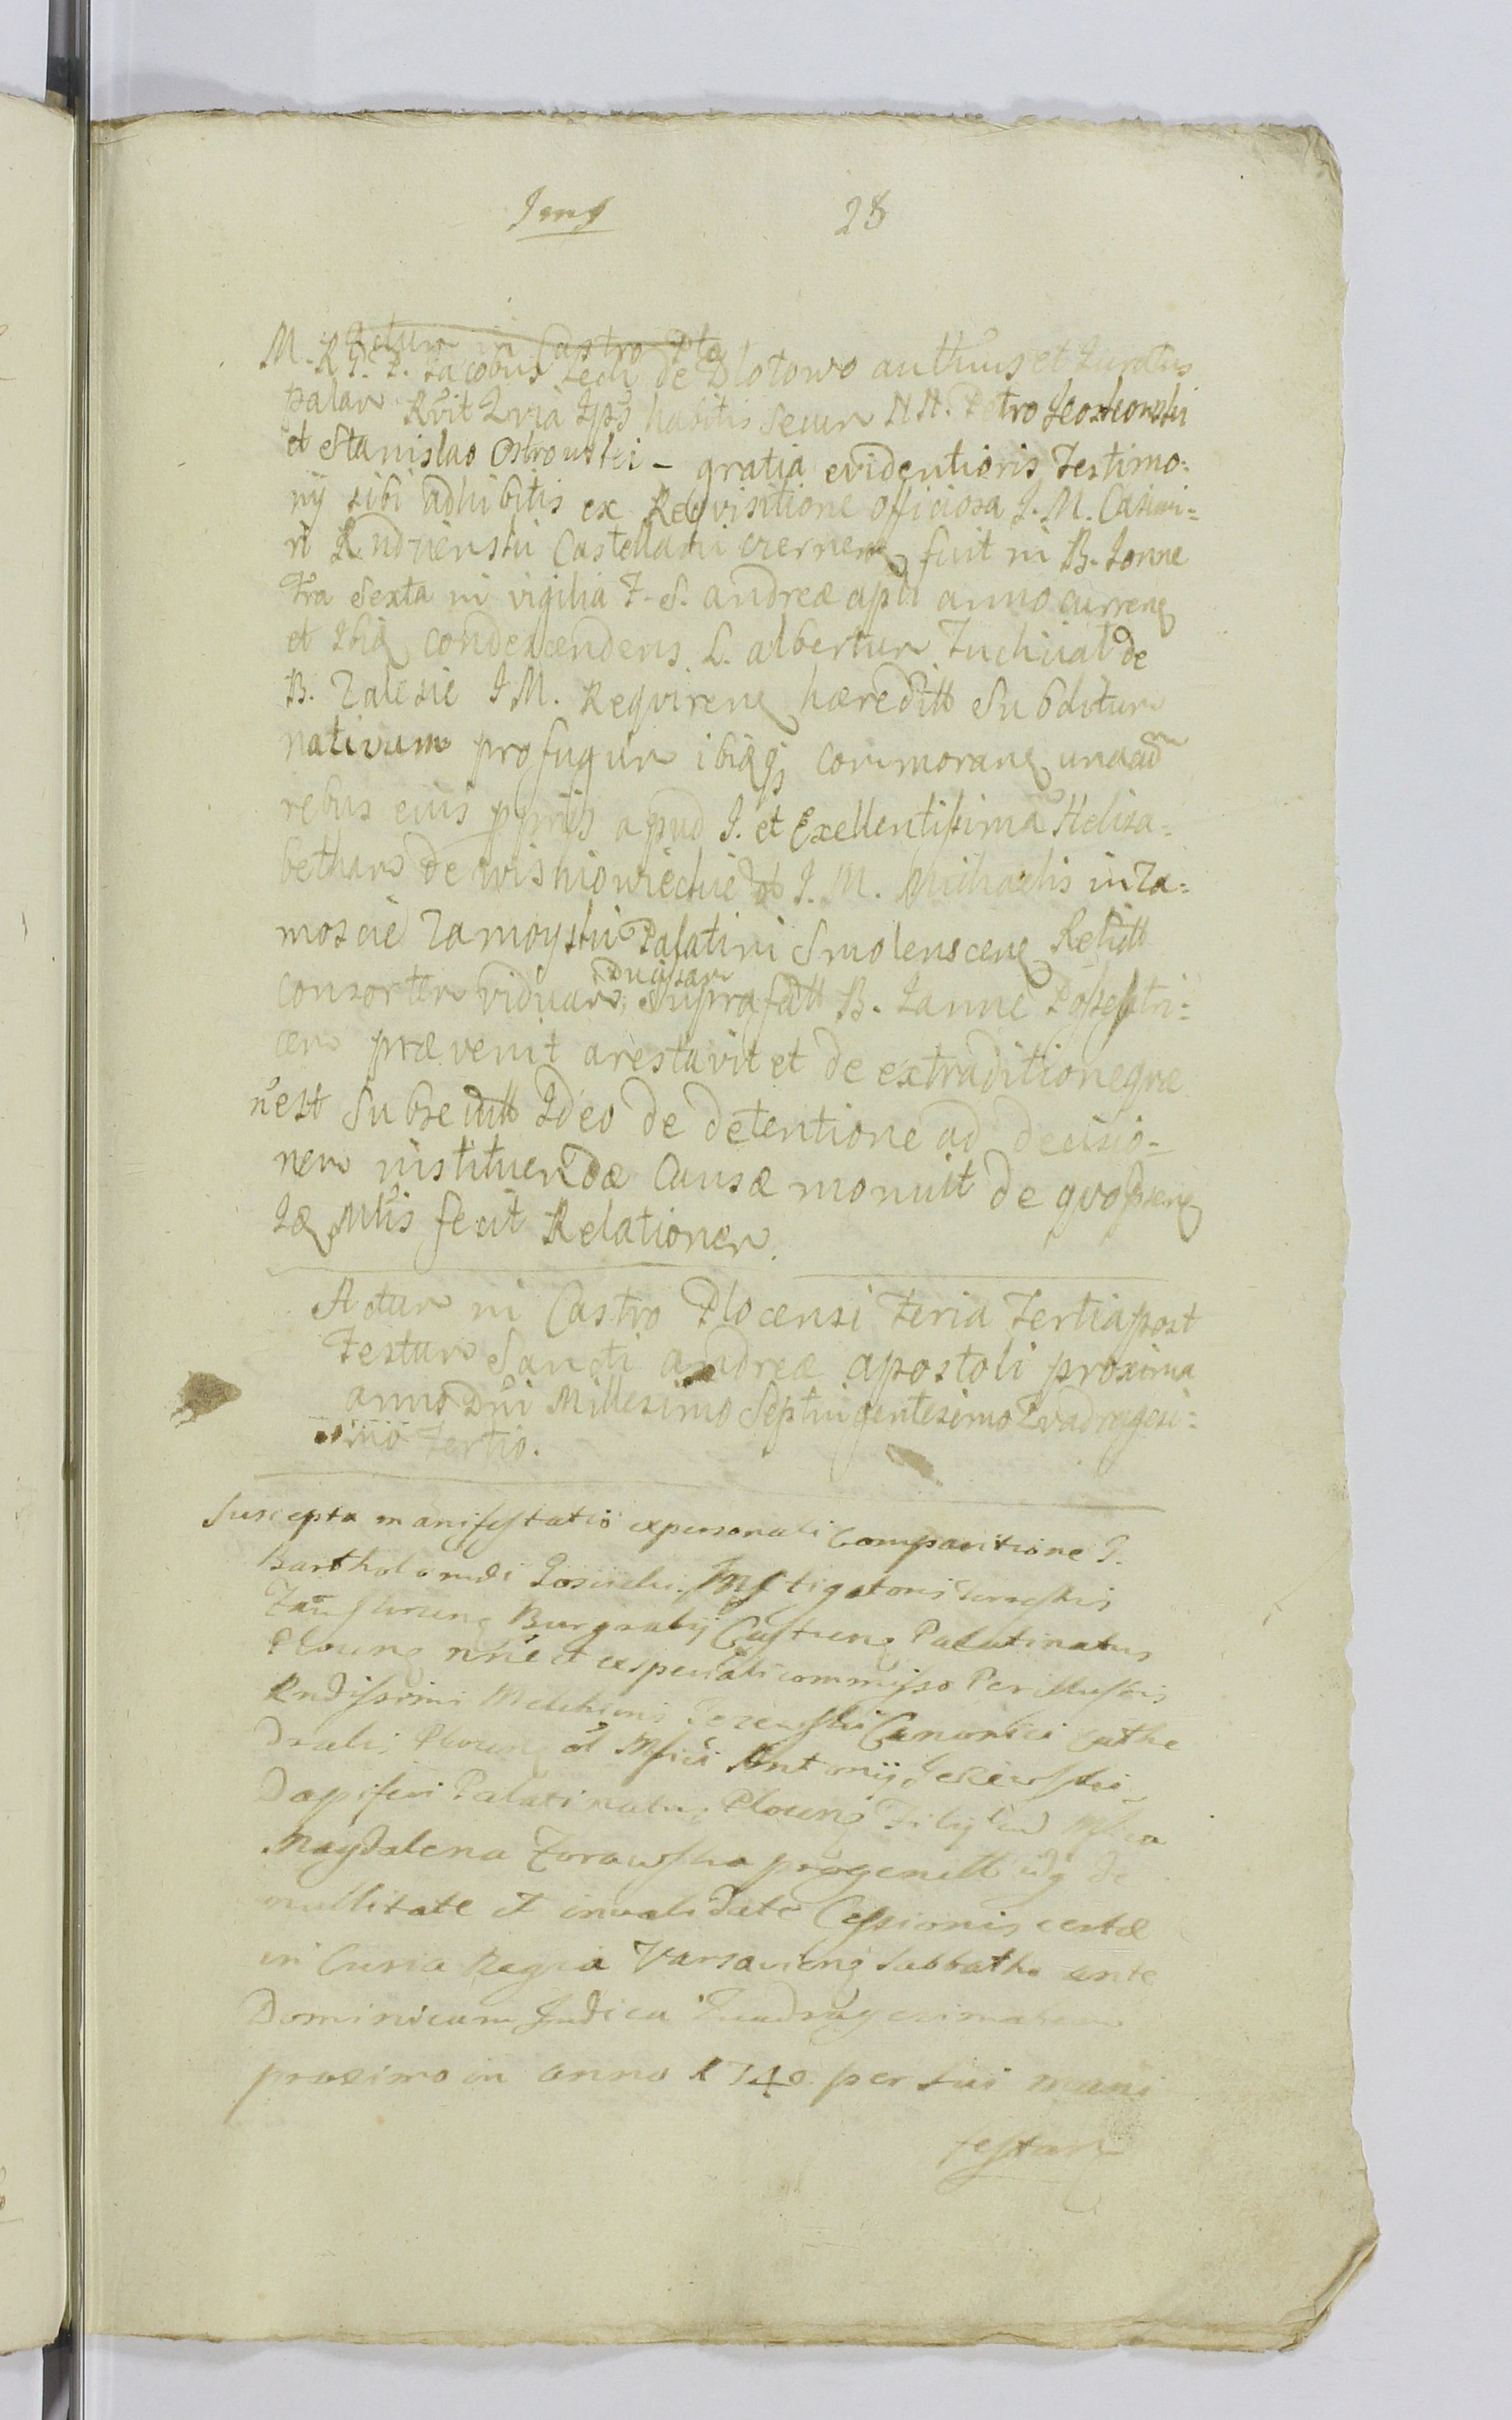 28
Actum in Castro Plo
M. R. J. P. Jacobus Lech de Plotowo authus et Juratus
palam Rvit Qvia Ipse habitis secum NN. Petro
et Stanislao Ostrowski – gratia evidentioris Testimo:
nij sibi adhibitis ex Reqvisitione officiosa J. M. Casimi:
ri Rudzienski Castellani czerneng fuit in B. Lonne
fra Sexta in vigilia F. S. andreæ apli anno curreng
et Ibiq condescendens L. albertum Tuchciał de
B. Zalesie J M. Reqvireng hæreditt Subditum
nativum profugum ibiq commorang una cum
rebus eius ppriis apud J. et Exellentissimã Heliza:
betham de wisniowieckie ol J. M. Michaelis in Za:
moscie Zamoyski Palatini Smolensceng Relictt
consortem viduam, Ducissam Suprafatt B. Lanne Possestri:
cem prævenit arestavit et de extraditione quæ
n'est Subsecutt Ideo de detentione ad decisio:
nem instituendæ Causæ monuit de qvo pseng
Læ Mtis fecit Relationem.
Actum in Castro Plocensi Feria Tertia post
Festum Sancti andreæ apostoli proxima
anno Dni Millesimo Septuigentesimo Qvadragesi:
mo tertio.
Suscepta manifestatio ex personali Comparitione J.
Bartholomæi Instigatoris terrestris
Burgrabij Castreng Palatinatus
Ploceng nñe et ex speciali commisso Perillustris
Rndissimi Melchioris Jezewski Canonici Cathe
dralis Ploceng ol Mfici Antonij Jezewski
Dapiferi Palatinatus Ploceng Filij cum Mfica
Magdalena Zorawska progenitt idq de
nullitate et invalidate Cessionis certæ
in Curia Regia Varsavieng Sabbatho ante
Dominicam Judica Quadragesimalem
proximo in anno 1740 per sui mani
festan